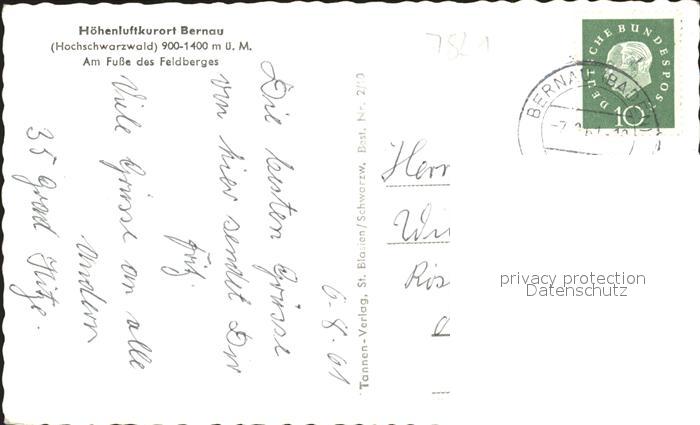 Höhenluftkurort Bernau
(Hochschwarzwald) 900-1400 m ü. M.
Am Fuße des Feldberges
6-8-61
Die besten Grüsse
von hier sendet Dir
Fritz
Viele Grüsse an alle
Andern
35 Grad Hitze.
Tannen-Verlag, St. Blasien/Schwarzw. Best. Nr. 2/10
7821
DEUTSCHE BUNDESPOST
10
BERNAU (BADEN)
Herr
Wi
Rös
privacy protection
Datenschutz